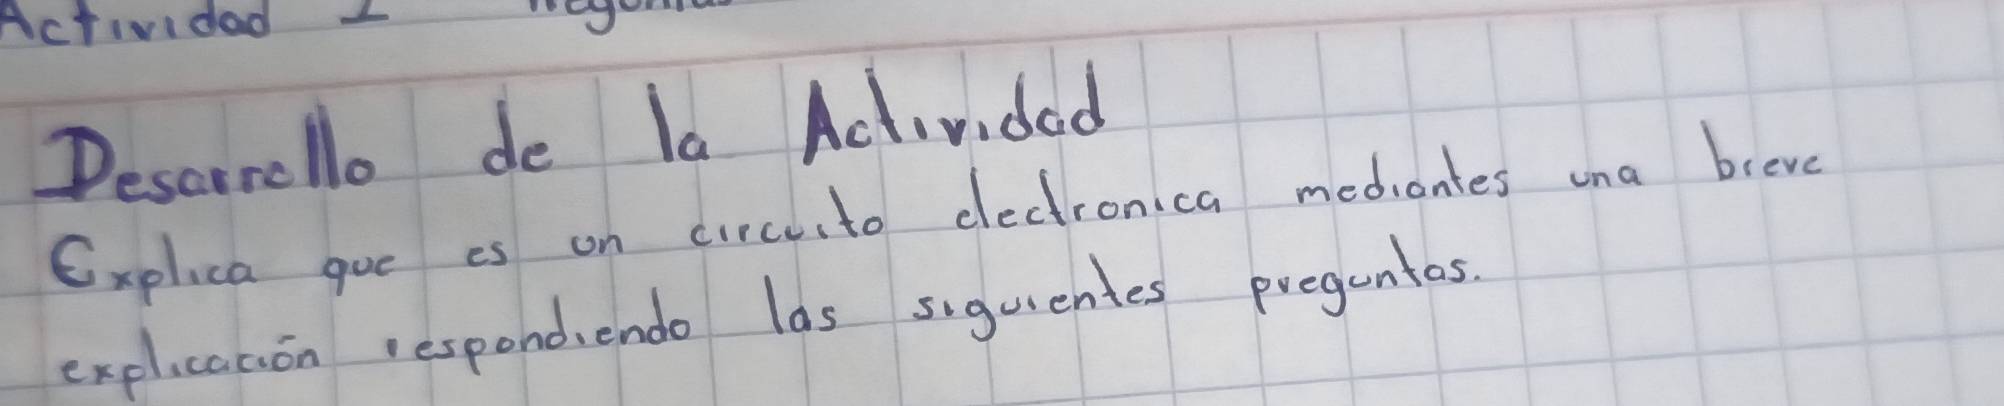 Actividad 1
Desarrollo de la Actividad
Explica que es un circuito electronica mediantes una breve
explicación respondiendo las siguientes preguntas.